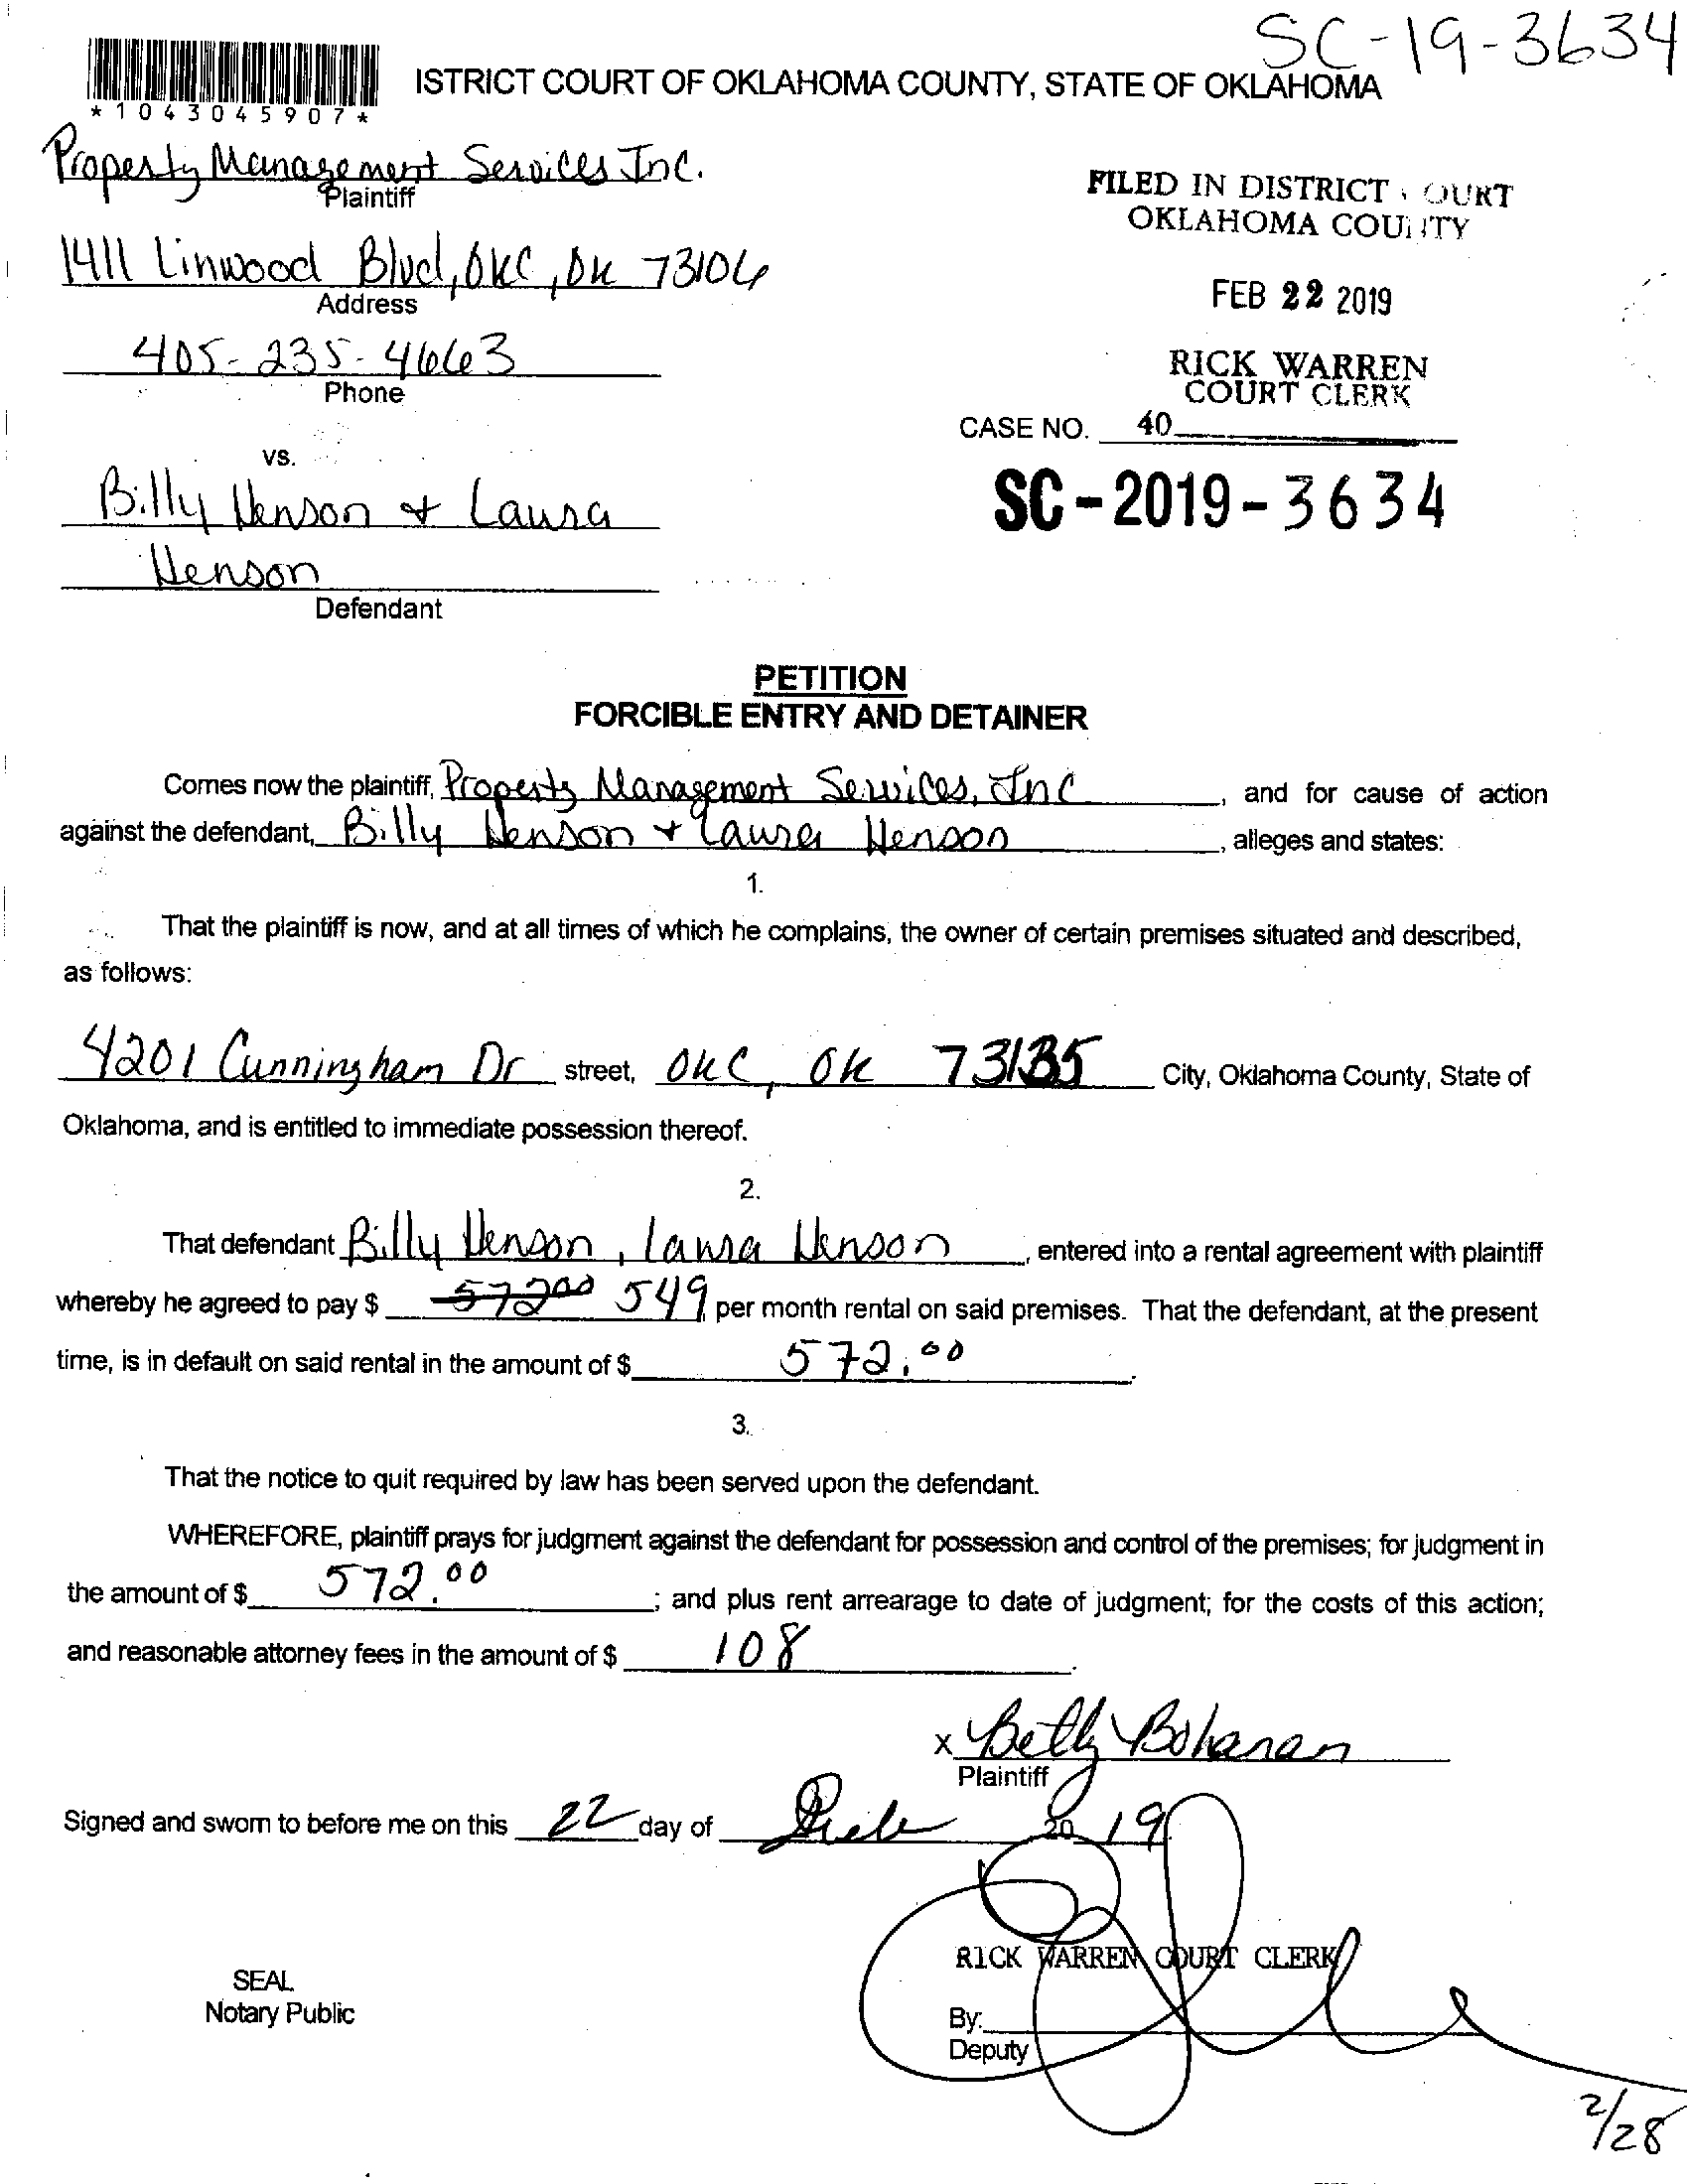 SC-19-3634
ISTRICT COURT OF OKLAHOMA COUNTY, STATE OF OKLAHOMA
*1043045907*
Property Management Services Inc.
Plaintiff
1411 Linwood Blvd, OKC, OK 73106
Address
405-235-4663
Phone
vs.
Billy Henson + Laura
Henson
Defendant
FILED IN DISTRICT COURT
OKLAHOMA COUNTY
FEB 22 2019
RICK WARREN
COURT CLERK
CASE NO. 40
SC-2019-3634
PETITION
FORCIBLE ENTRY AND DETAINER
Comes now the plaintiff, Property Management Services, Inc , and for cause of action
against the defendant, Billy Henson + Laura Henson , alleges and states:
1.
That the plaintiff is now, and at all times of which he complains, the owner of certain premises situated and described,
as follows:
4201 Cunningham Dr street, OKC, OK 73135 City, Oklahoma County, State of
Oklahoma, and is entitled to immediate possession thereof.
2.
That defendant Billy Henson, Laura Henson , entered into a rental agreement with plaintiff
whereby he agreed to pay $ 572.00 549 per month rental on said premises. That the defendant, at the present
time, is in default on said rental in the amount of $ 572.00 .
3.
That the notice to quit required by law has been served upon the defendant.
WHEREFORE, plaintiff prays for judgment against the defendant for possession and control of the premises; for judgment in
the amount of $ 572.00 ; and plus rent arrearage to date of judgment; for the costs of this action;
and reasonable attorney fees in the amount of $ 108 .
x Betty Bohanan
Plaintiff
Signed and sworn to before me on this 22 day of 20 19
RICK WARREN COURT CLERK
SEAL
Notary Public
By:
Deputy
2/28